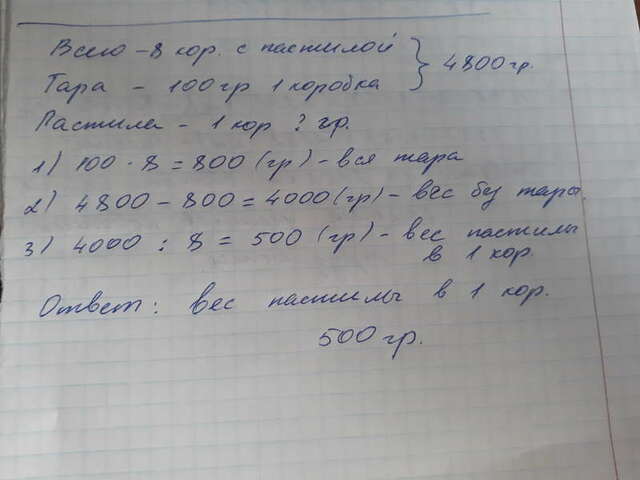 Всего - 8 кор. с пастилой } 4800гр.
Тара - 100гр 1 коробка
Пастила - 1 кор ? гр.
1) 100 · 8 = 800 (гр) - вся тара
2) 4800 - 800 = 4000 (гр) - вес без тары.
3) 4000 : 8 = 500 (гр) - вес пастилы
в 1 кор.
Ответ: вес пастилы в 1 кор.
500гр.